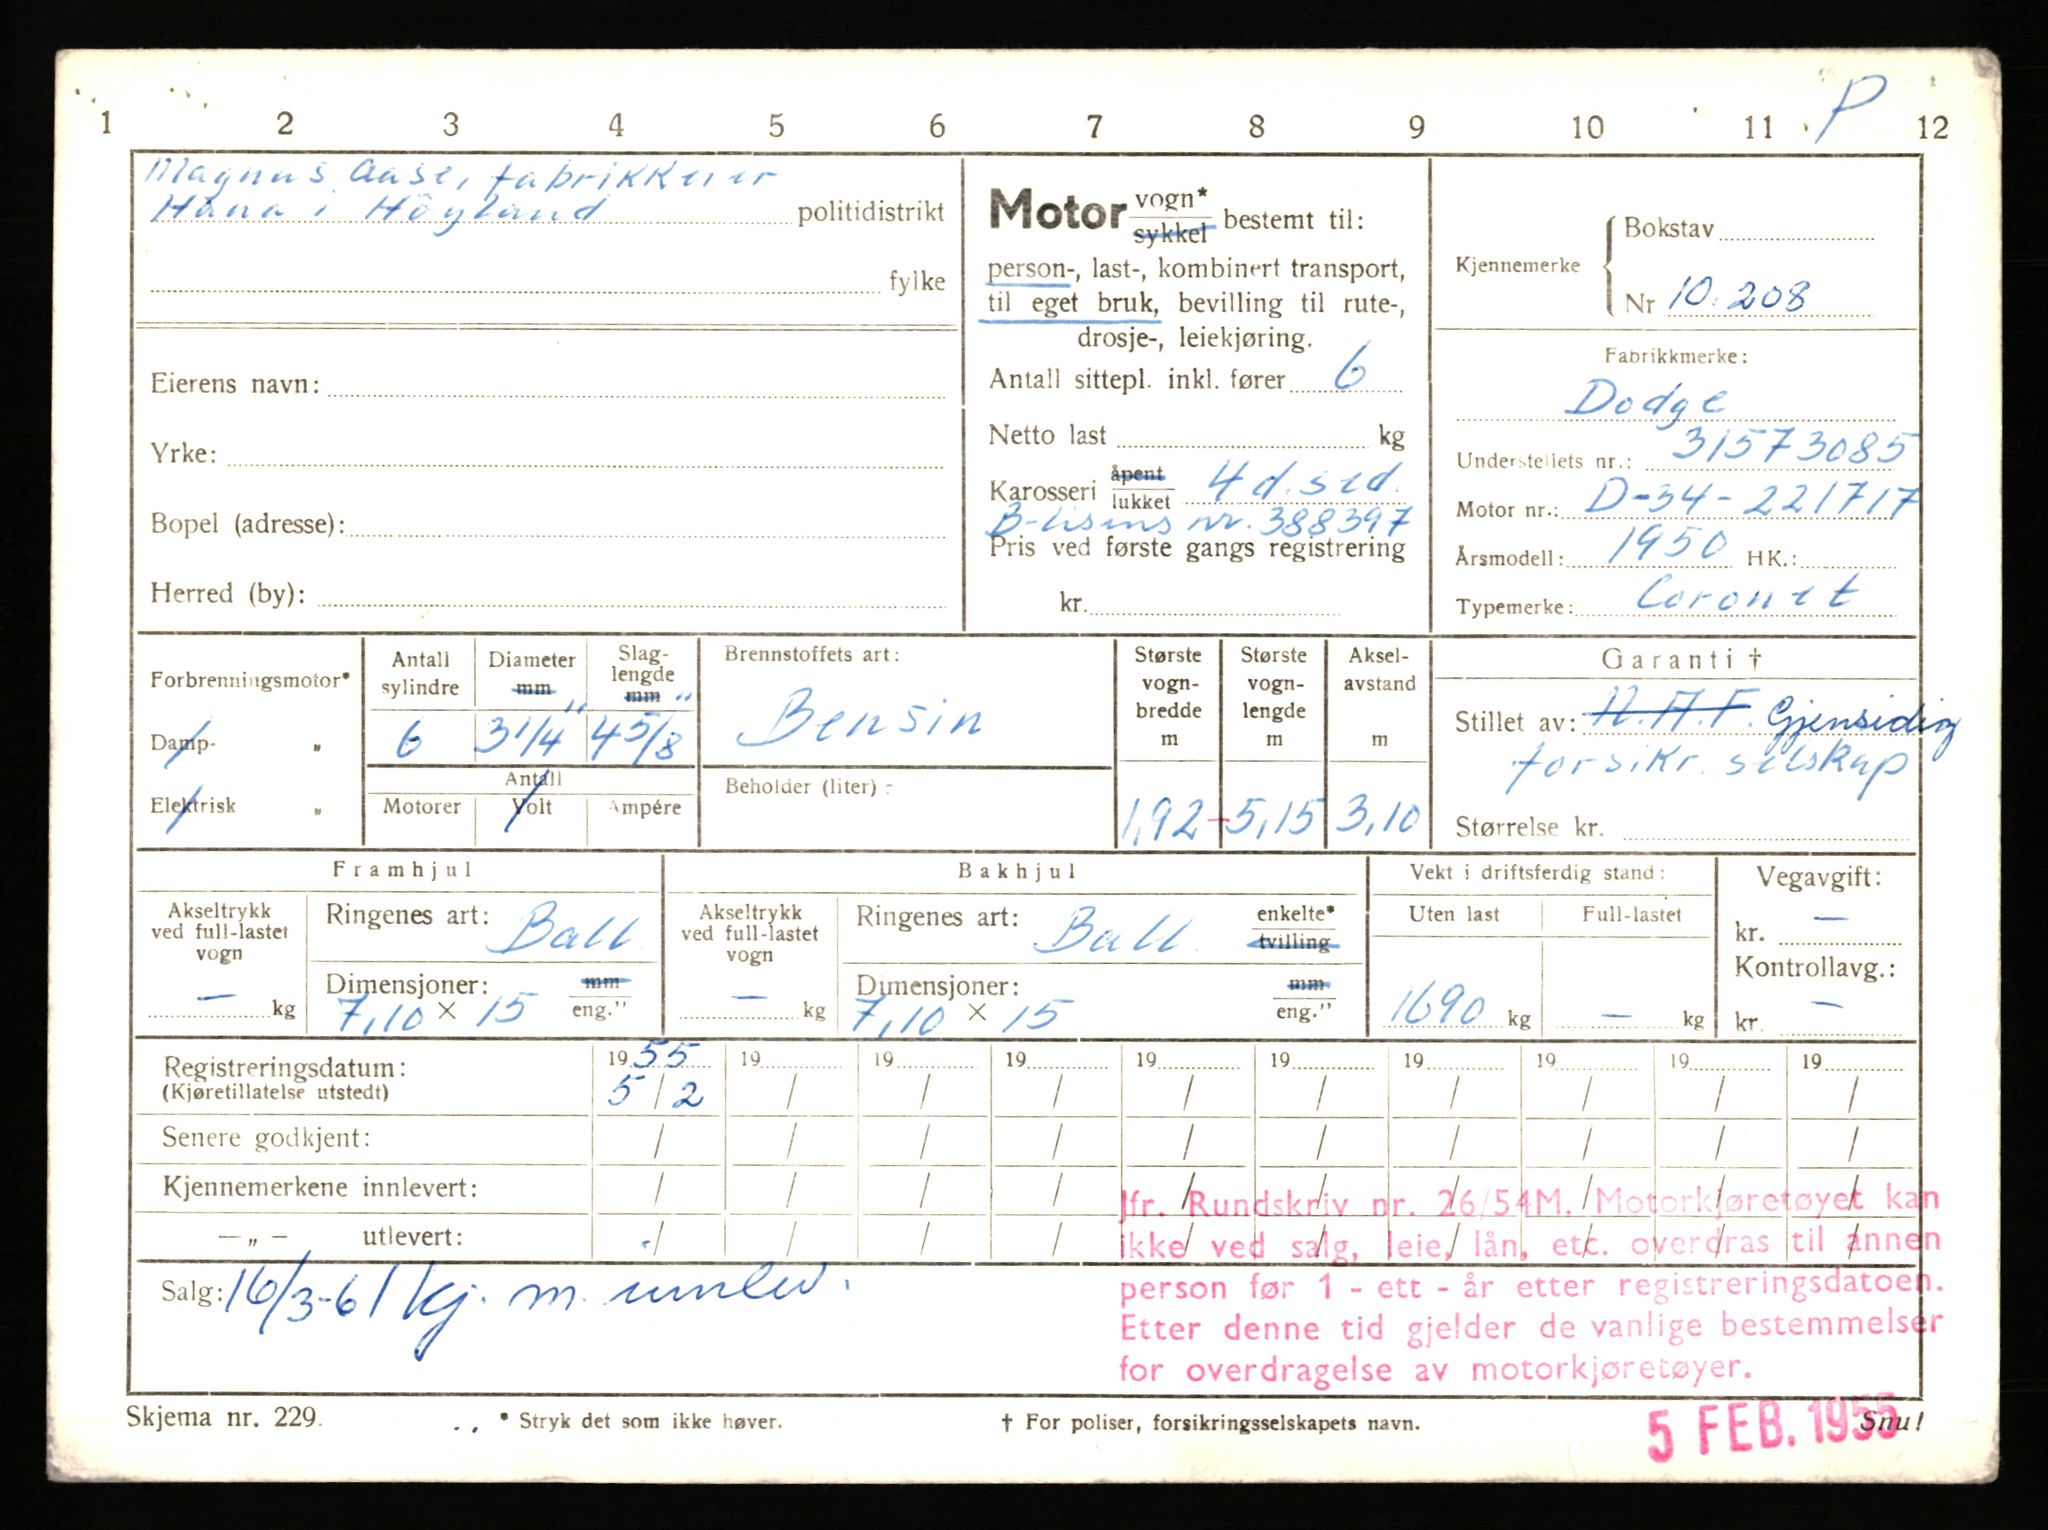 P
1 2 3 4 5 6 7 8 9 10 11 12
Magnus Aase, fabrikkeier
Hana i Høyland politidistrikt
fylke
Eierens navn:
Yrke:
Bopel (adresse):
Herred (by):
Motor vogn* sykkel bestemt til:
person-, last-, kombinert transport,
til eget bruk, bevilling til rute-,
drosje-, leiekjøring.
Antall sittepl. inkl. fører 6
Netto last kg
Karosseri åpent lukket 4 d. sed.
B-lisens nr. 388397
Pris ved første gangs registrering
kr.
Kjennemerke Bokstav
Nr 10.208
Fabrikkmerke:
Dodge
Understellets nr.: 31573085
Motor nr.: D-34-221717
Årsmodell: 1950 HK.:
Typemerke: Coronet
Forbrenningsmotor*
Damp- „
Elektrisk „
Antall sylindre
6
Diameter mm "
3 1/4
Slag-lengde mm "
4 5/8
Antall
Motorer Volt Ampére
Brennstoffets art:
Bensin
Beholder (liter) :
Største vogn-bredde m
1,92
Største vogn-lengde m
5,15
Aksel-avstand m
3,10
Garanti †
Stillet av: N.A.F. Gjensidig
forsikr. selskap
Størrelse kr.
Framhjul
Akseltrykk ved full-lastet vogn
— kg
Ringenes art: Ball.
Dimensjoner: mm eng."
7,10 × 15
Bakhjul
Akseltrykk ved full-lastet vogn
— kg
Ringenes art: Ball. enkelte* tvilling
Dimensjoner: mm eng."
7,10 × 15
Vekt i driftsferdig stand:
Uten last Full-lastet
1690 kg — kg
Vegavgift:
kr. —
Kontrollavg.:
kr. —
Registreringsdatum: 1955 19 19 19 19 19 19 19 19 19
(Kjøretillatelse utstedt) 5/2 / / / / / / / / /
Senere godkjent: / / / / / / / / / /
Kjennemerkene innlevert: / / / / / / / / / /
— „ — utlevert: / / / / / / / / / /
Salg: 16/3-61 kj. m. innlev.
Jfr. Rundskriv nr. 26/54M. Motorkjøretøyet kan
ikke ved salg, leie, lån, etc. overdras til annen
person før 1 - ett - år etter registreringsdatoen.
Etter denne tid gjelder de vanlige bestemmelser
for overdragelse av motorkjøretøyer.
Skjema nr. 229. * Stryk det som ikke høver. † For poliser, forsikringsselskapets navn. Snu!
5 FEB. 1955